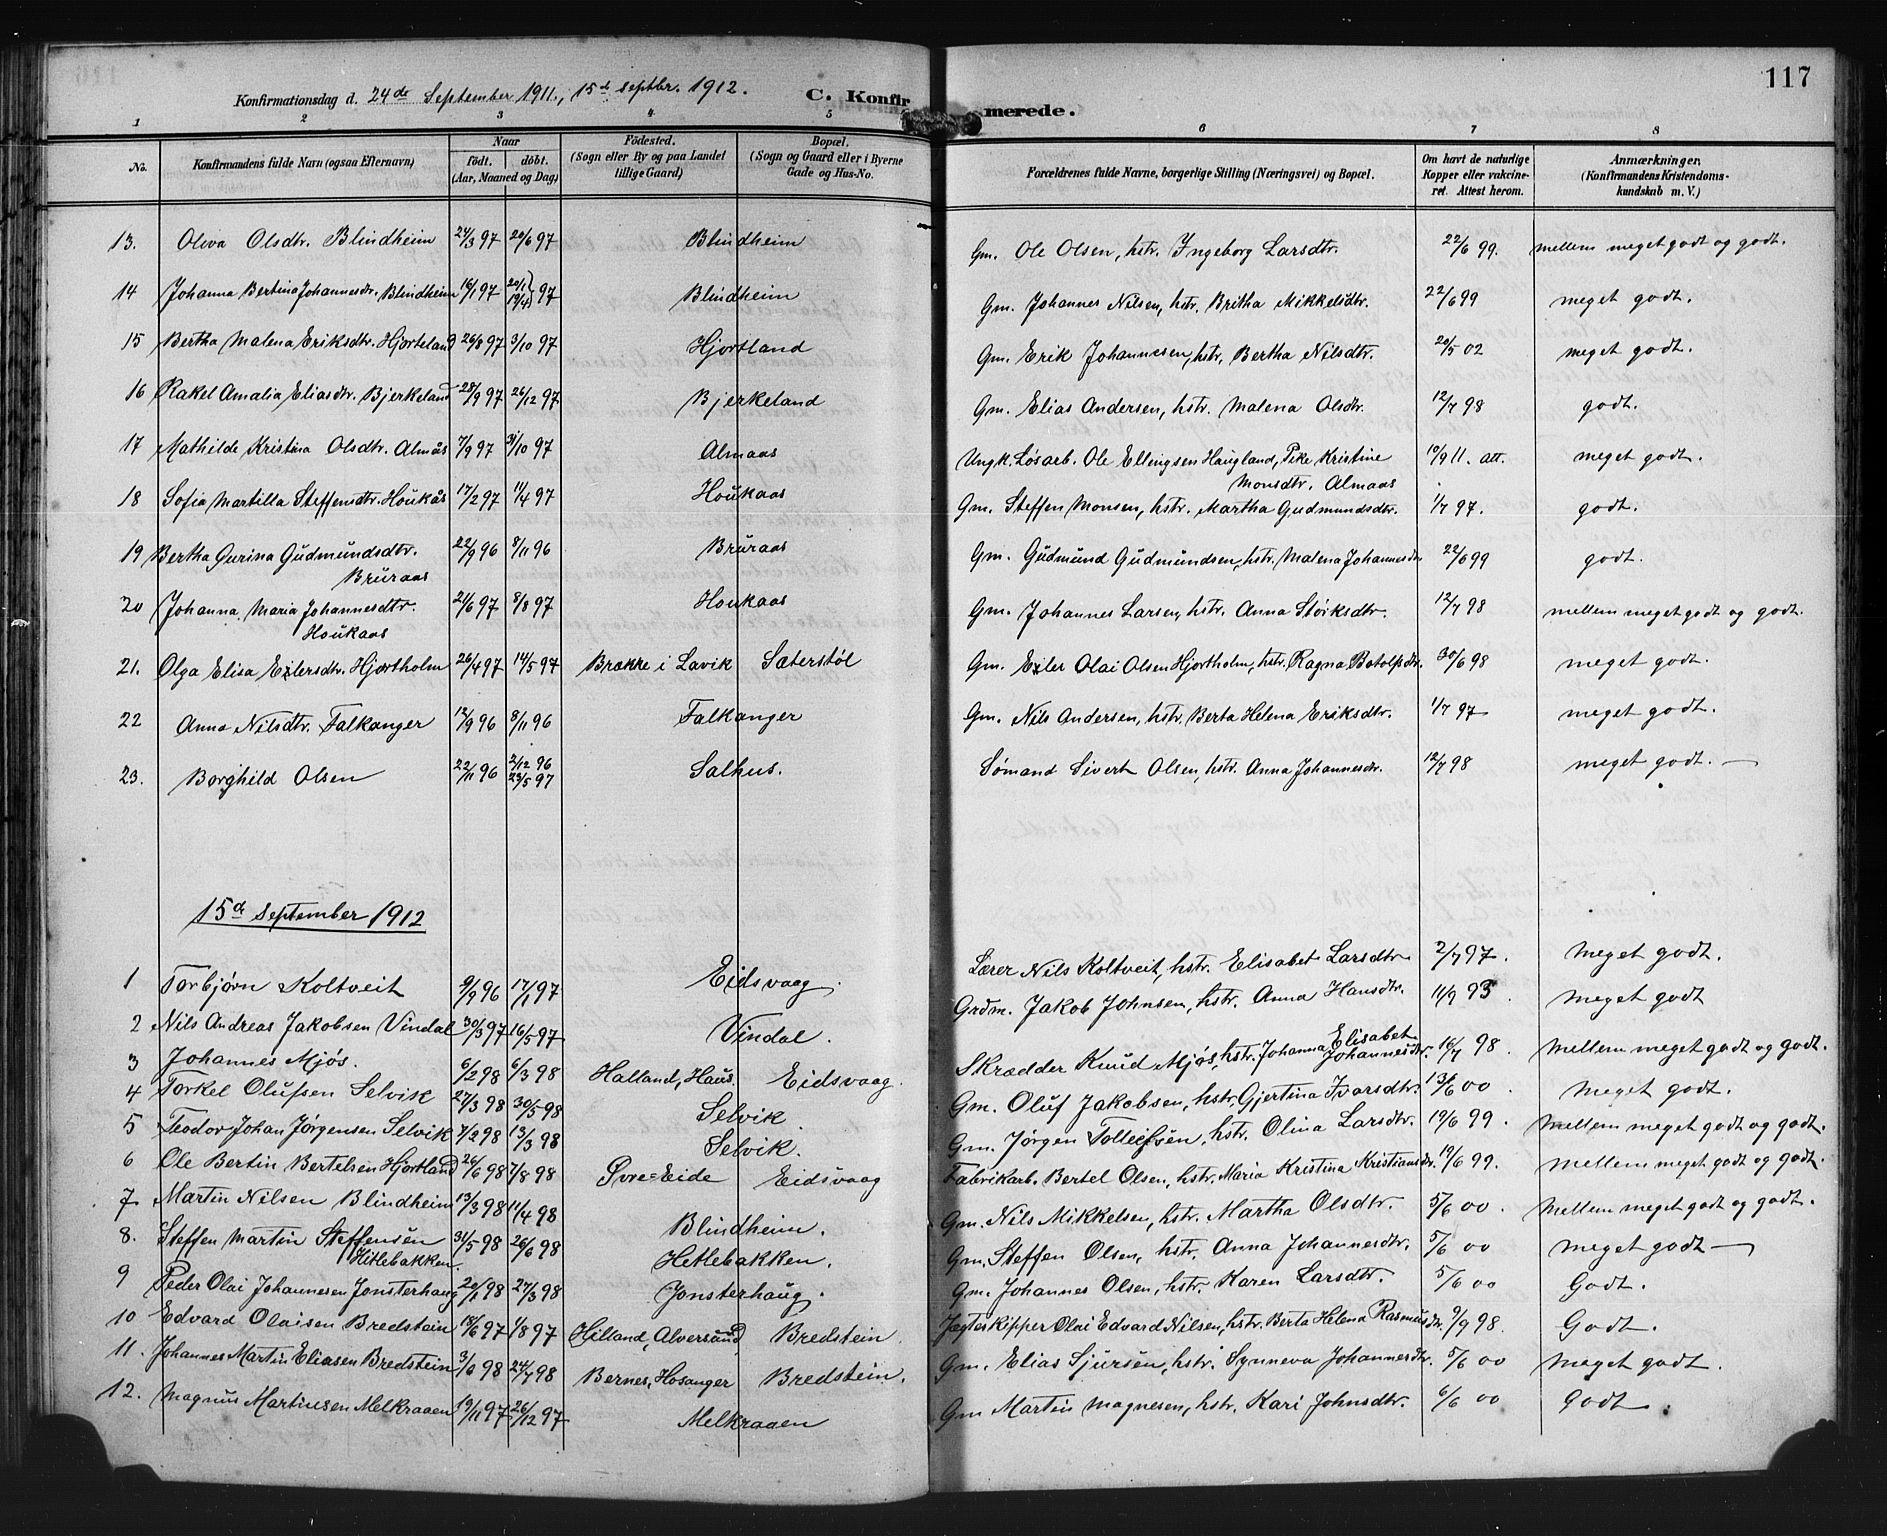 117
Konfirmationsdag d. 24de September 1911, 15d septbr. 1912. C. Konfirmerede.
1 2 3 4 5 6 7 8
No. Konfirmandens fulde Navn (ogsaa Efternavn) Naar født. døbt. (Aar, Maaned og Dag) Fødested. (Sogn eller By og paa Landet tillige Gaard) Bopæl. (Sogn og Gaard eller i Byerne Gade og Hus-No. Forældrenes fulde Navne, borgerlige Stilling (Næringsvei) og Bopæl. Om havt de naturlige Kopper eller vakcineret. Attest herom. Anmærkninger. (Konfirmandens Kristendomskundskab m. V.)
13. Oliva Olsdtr. Blindheim 24/3 97 20/6 97 Blindheim Gm. Ole Olsen, hstr. Ingeborg Larsdtr. 22/6 99. mellem meget godt og godt.
14 Johanna Bertina Johannesdtr. Blindheim 16/1 97 20/1 19/4 97 Blindheim Gm. Johannes Nilsen, hstr. Britha Mikkelsdtr. 22/6 99 meget godt.
15 Bertha Malena Eriksdtr. Hjorteland 26/8 97 3/10 97 Hjortland Gm. Erik Johannesen, hstr, Bertha Nilsdtr. 20/5 02 meget godt.
16 Rakel Amalia Eliasdtr. Bjerkeland 28/9 97 26/12 97 Bjerkeland Gm. Elias Andersen, hstr. Malena Olsdtr. 12/7 98 godt.
17 Mathilde Kristina Olsdtr. Almås 7/9 97 31/10 97 Almaas Ungk. Løsarb. Ole Ellingsen Haugland, Pike Kristine Monsdtr. Almaas 10/9 11. att. meget godt.
18 Sofia Martilla Steffensdtr. Houkås 17/2 97 11/4 97 Houkaas Gm. Steffen Monsen, hstr. Martha Gudmundsdtr. 1/7 97. godt.
19 Bertha Gurina Gudmundsdtr. Bruraas 22/9 96 8/11 96 Bruraas Gm. Gudmund Gudmundsen, hstr. Malena Johannesdtr 22/6 99 godt.
20 Johanna Maria Johannesdtr. Houkaas 21/6 97 8/8 97 Houkaas Gm. Johannes Larsen, hstr. Anna Størksdtr. 12/7 98 mellem meget godt og godt.
21. Olga Elisa Eilersdtr. Hjortholm 26/4 97 14/5 97 Brække i Lavik Sæterstøl Gm. Eiler Olai Olsen Hjortholm, hstr. Ragna Botolfsdtr. 30/6 98 meget godt.
22 Anna Nilsdtr. Falkanger 12/9 96 8/11 96 Falkanger Gm. Nils Andersen, hstr. Berta Helena Eriksdtr. 1/7 97 meget godt.
23. Borghild Olsen 22/11 96 2/12 96 23/5 97 Salhus. Sømand Sivert Olsen, hstr. Anna Johannesdtr. 12/7 98 meget godt.
15d september 1912
1 Torbjørn Koltveit 9/9 96 17/1 97 Eidsvaag. Lærer Nils Koltveit, hstr. Elisabet Larsdtr 2/7 97. meget godt.
2 Nils Andreas Jakobsen Vindal 30/3 97 16/5 97 Vindal. Grdm. Jakob Johnsen, hstr. Anna Hansdtr. 11/9 93. meget godt
3 Johannes Mjøs. 6/2 98 6/3 98 Halland, Haus. Eidsvaag. Skrædder Knud Mjøs, hstr. Johanna Elisabet Johannesdtr. 16/7 98. Mellem meget godt og godt.
4 Torkel Olufsen Selvik 27/3 98 30/5 98 Selvik. Gm. Oluf Jakobsen, hstr. Gjertina Ivarsdtr. 13/6 00. meget godt.
5 Teodor Johan Jørgensen Selvik 7/2 98 13/3 98 Selvik. Gm. Jørgen Tolleifsen, hstr. Olina Larsdtr. 19/6 99. Mellem meget godt og godt.
6 Ole Bertin Bertelsen Hjortland 26/6 98 7/8 98 Øvre=Eide Eidsvaag Fabrikarb. Bertel Olsen, hstr. Maria Kristina Kristiansdtr 19/6 99. Mellem meget godt og godt.
7 Martin Nilsen Blindheim 13/3 98 11/4 98 Blindheim. Gm. Nils Mikkelsen, hstr. Martha Olsdtr. 5/6 00. Mellem meget godt og godt.
8. Steffen Martin Steffensen Hitlebakken. 31/5 98 26/6 98 Hetlebakken. Gm. Steffen Olsen, hstr. Anna Johannesdtr. 5/6 00 meget godt
9 Peder Olai Johannesen Jonsterhaug 20/1 98 27/3 98 Jonsterhaug. Gm. Johannes Olsen, hstr. Karen Larsdtr. 5/6 00 Godt.
10 Edvard Olaisen Bredstein 18/6 97 1/8 97 Hilland, Alversund Bredstein. Jægteskipper Olai Edvard Nilsen, hstr. Berta Helena Rasmusdtr. 9/9 98. Godt.
11. Johannes Martin Eliasen Bredstein 24/7 98 Bernes, Hosanger Bredstein. Gm. Elias Sjursen, hstr. Synneva Johannesdtr. 5/6 00 meget godt.
12. Magnus Martinsen Melkraaen 19/11 97 26/12 97 Melkraaen Gm Martin Magnesen, hstr. Kari Johnsdtr. 6/6 00 Godt.